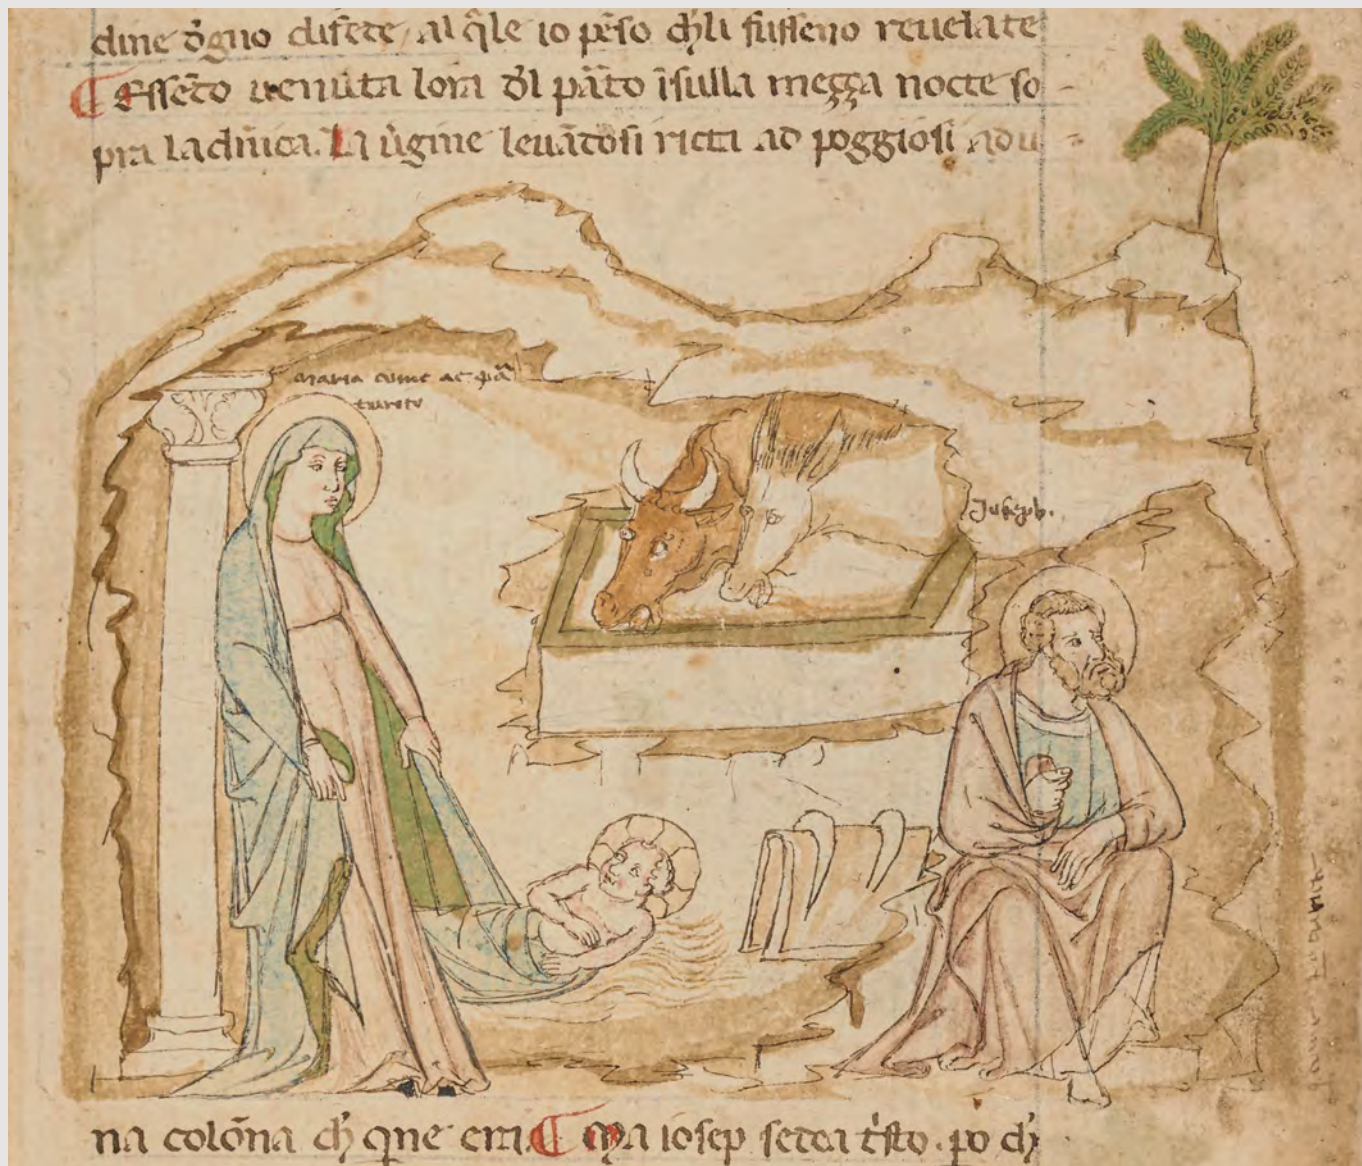 dine d̄gno disete, al q̄le io pēso ch̄li fussero reuelate
Essēdo uenuta lora d̄l pāto īsulla meçça nocte so
pra la dn̄ica. La v̄gine leuādosi ricta ad poggiosi ad u
maria come ac pā
turito
Joseph.
na colōna ch̄ qine era. Ma iosep sedea tr̄isto. po ch̄